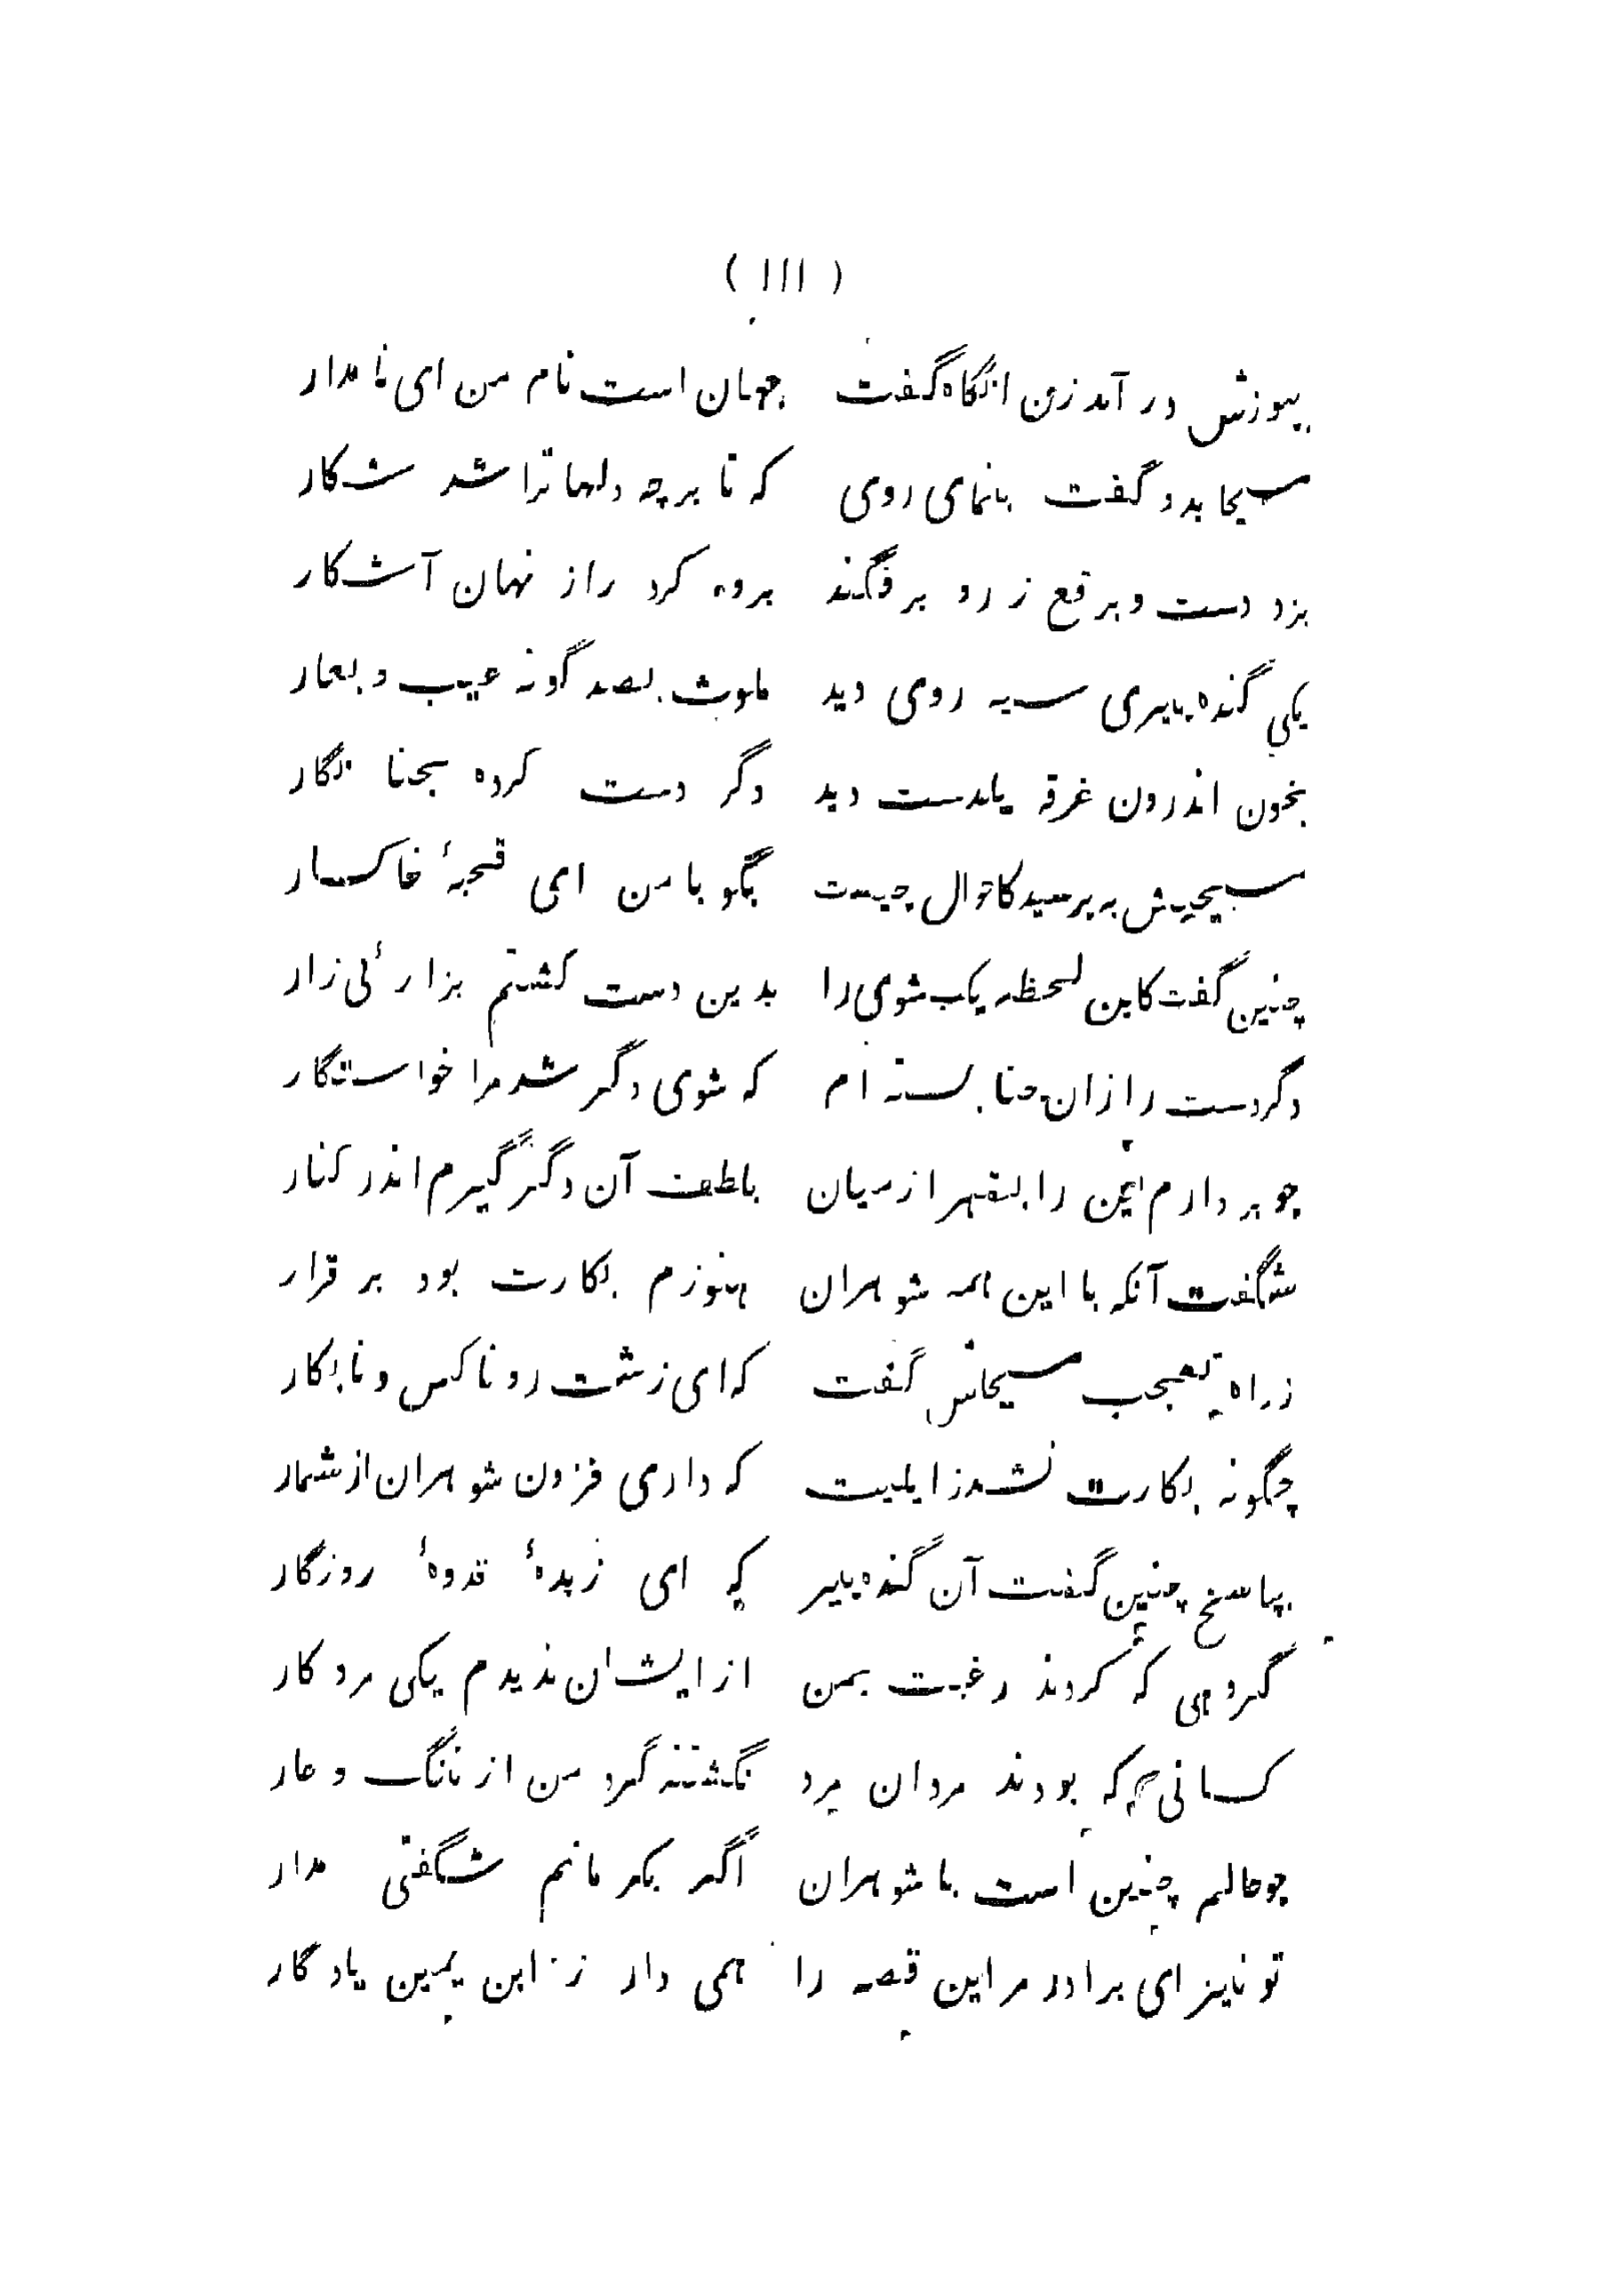 ( ۱۱۱ )
بپوزش در آمد زن انگاه گفت جهان است نام من ای نامدار
مسیحا بدو گفت بنمای روی که تا بر چه دلها ترا شد شکار
بزد دست و برقع ز رو بر فگند برو کرد راز نهان آشکار
یکی گنده پیری سیه روی دید ملوث بصد گونه عیب و بعار
بخون اندرون غرقه یکدست دید دگر دست کرده بحنا نگار
مسیحیش به پرسید کاحوال چیست بگو با من ای قحبهٔ خاکسار
چنین گفت کاین لحظه یک شوی را بدین دست کشتم بزارئی زار
دگر دست را زان حنا بسته ام که شوی دگر شد مرا خواستگار
چو بر دارم این را بقهر از میان بلطف آن دگر گیرم اندر کنار
شگفت آنکه با این همه شوهران هنوزم بکارت بود بر قرار
ز راه تعجب مسیحاش گفت که ای زشت رو ناکس و نابکار
چگونه بکارت نشد زایلیت که داری فزون شوهران از شمار
بپاسخ چنین گفت آن گنده پیر که ای زبدهٔ قدوهٔ روزگار
گروهی که کردند رغبت بمن از ایشان ندیدم یکی مرد کار
کسانی که بودند مردان مرد نگشتند گرد من از ننگ و عار
چو حالم چنین است با شوهران اگر بکر مانم شگفتی مدار
تو نیز ای برادر مر این قصه را همی دار ز ابن یمین یادگار